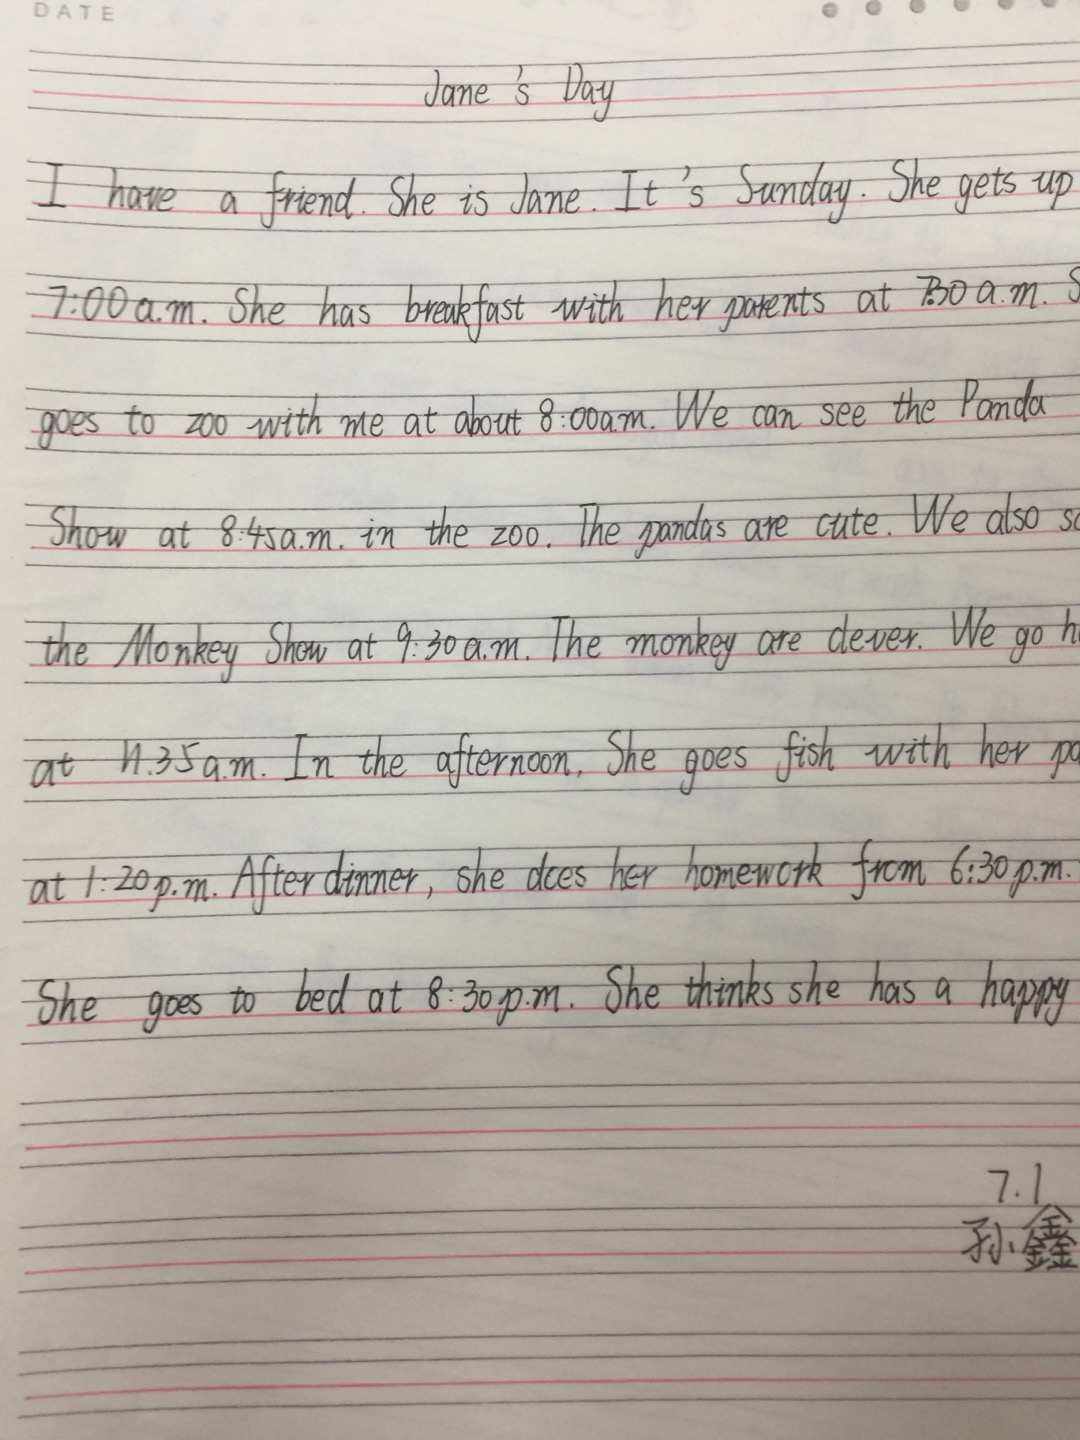 DATE
Jane's Day
I have a friend. She is Jane. It's Sunday. She gets up
7:00a.m. She has breakfast with her parents at 7:30 a.m.
goes to zoo with me at about 8:00a.m. We can see the Panda
Show at 8:45a.m. in the zoo. The pandas are cute. We also
the Monkey Show at 9:30a.m. The monkey are clever. We go
at 11.35a.m. In the afternoon, She goes fish with her
at 1:20p.m. After dinner, she does her homework from 6:30p.m.
She goes to bed at 8:30p.m. She thinks she has a happy
7.1
孙鑫